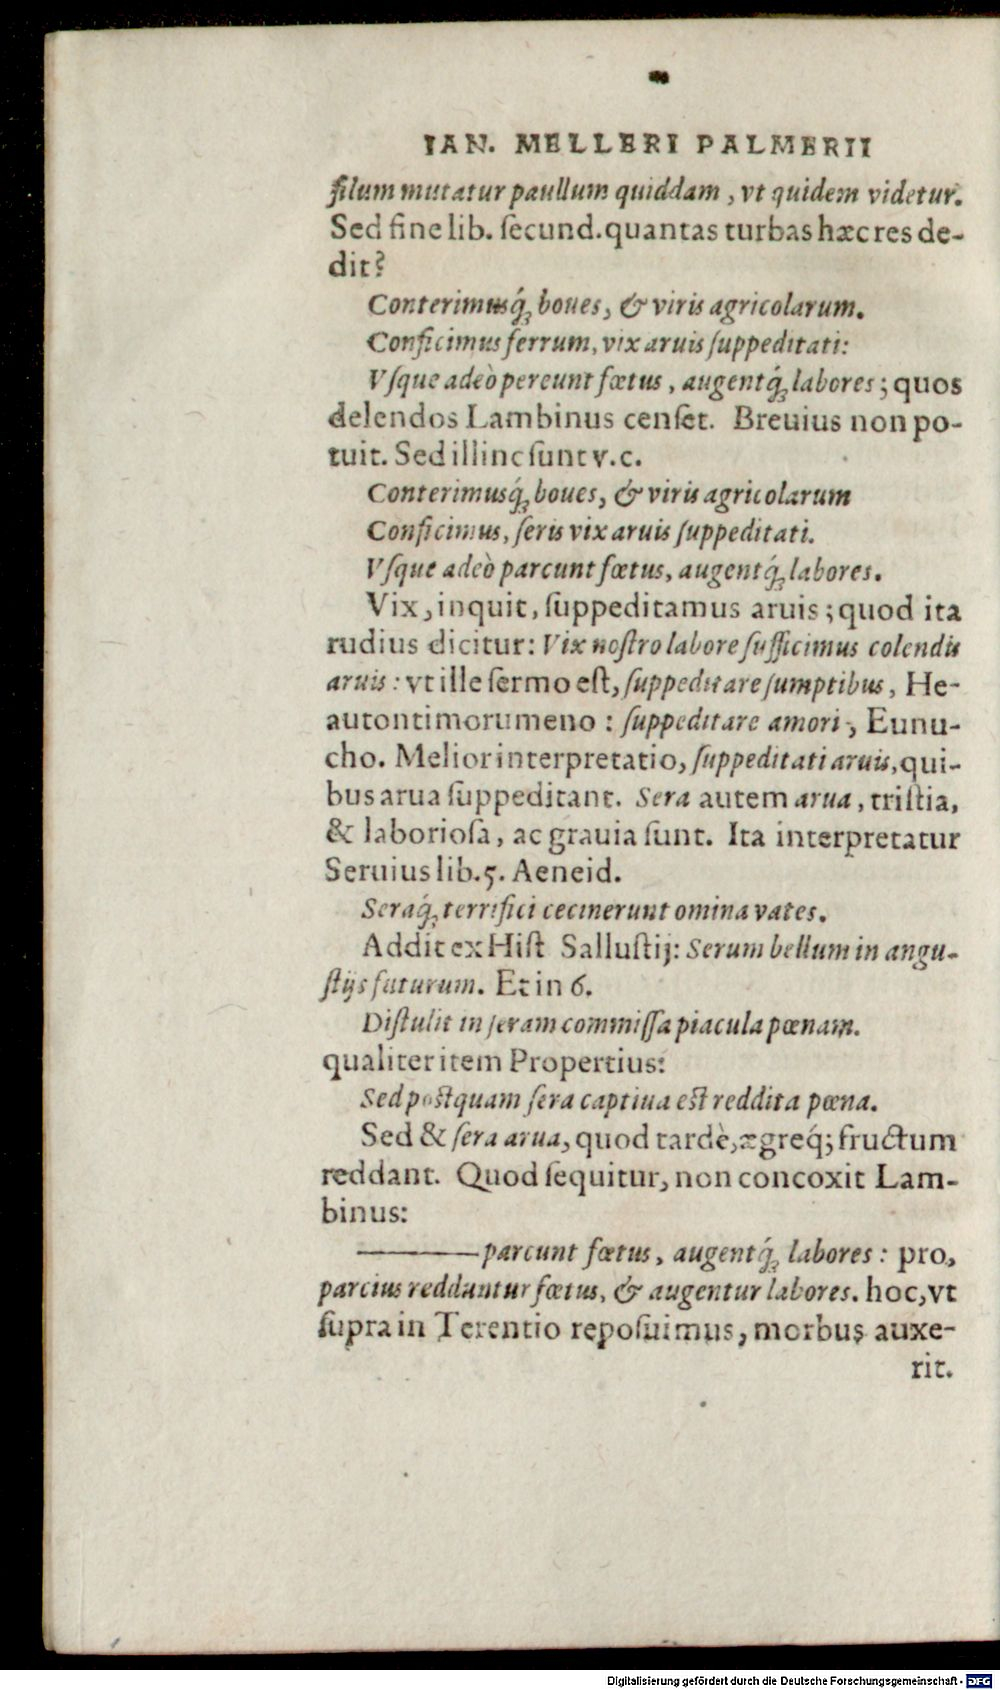 IAN. MELLERI PALMERII
filum mutatur paullum quiddam, vt quidem videtur.
Sed fine lib. ſecund. quantas turbas hæc res de-
dit?
Conterimusq́; boues, & viris agricolarum.
Conficimus ferrum, vix aruis ſuppeditati:
Vſque adeò pereunt fœtus, augentq́; labores; quos
delendos Lambinus cenſet. Breuius non po-
tuit. Sed illinc ſunt v.c.
Conterimusq́; boues, & viris agricolarum
Conficimus, ſeris vix aruis ſuppeditati.
Vſque adeò parcunt fœtus, augentq́; labores.
Vix, inquit, ſuppeditamus aruis; quod ita
rudius dicitur: Vix noſtro labore ſufficimus colendis
aruis: vt ille ſermo eſt, ſuppeditare ſumptibus, He-
autontimorumeno: ſuppeditare amori, Eunu-
cho. Melior interpretatio, ſuppeditati aruis, qui-
bus arua ſuppeditant. Sera autem arua, triſtia,
& laborioſa, ac grauia ſunt. Ita interpretatur
Seruius lib. 5. Aeneid.
Seraq́; terrifici cecinerunt omina vates.
Addit ex Hiſt Salluſtij: Serum bellum in angu-
ſtijs futurum. Et in 6.
Diſtulit in ſeram commiſſa piacula pœnam.
qualiter item Propertius:
Sed postquam ſera captiua est reddita pœna.
Sed & ſera arua, quod tardè, ægreq́; fructum
reddant. Quod ſequitur, non concoxit Lam-
binus:
———parcunt fœtus, augentq́; labores: pro,
parcius redduntur fœtus, & augentur labores. hoc, vt
ſupra in Terentio repoſuimus, morbus auxe-
rit.
Digitalisierung gefördert durch die Deutsche Forschungsgemeinschaft - DFG